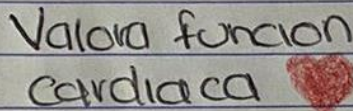 Valora funcion
cardiaca